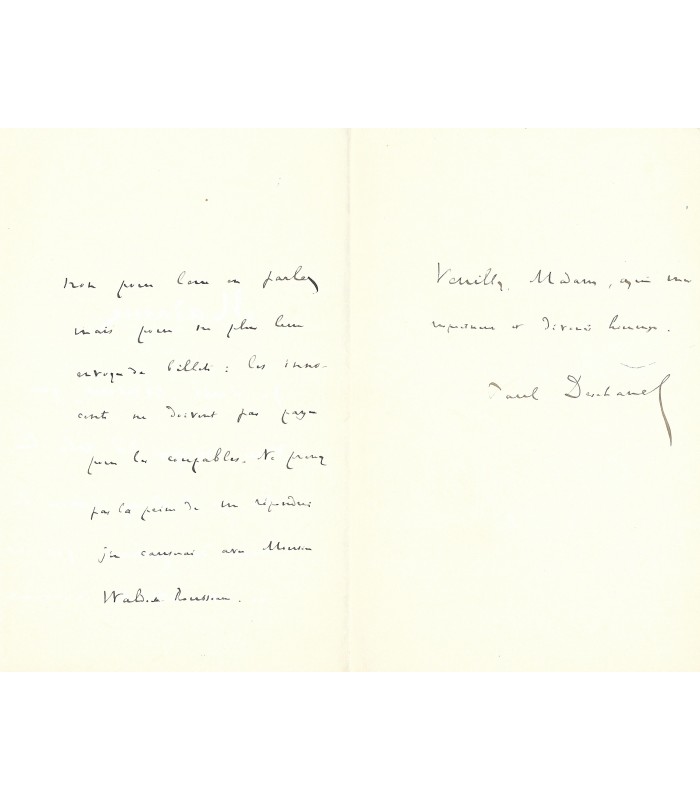 non pour leur en parler,
mais pour ne plus leur
envoyer de billets : les inno-
cents ne doivent pas payer
pour les coupables. Ne prenez
pas la peine de me répondre
j'en causerai avec Monsieur
Waldeck-Rousseau.
Veuillez, Madame, agréer mes
respectueux et dévoués hommages.
Paul Deschanel